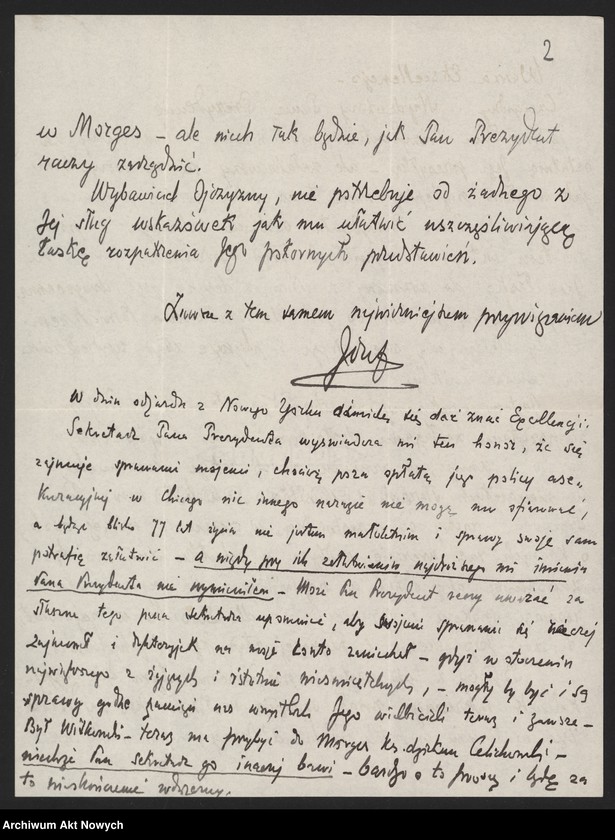 2
w Morges – ale niech tak będzie, jak Pan Prezydent
raczy zarządzić.
Wybawiciel Ojczyzny, nie potrzebuje od żadnego z
Jej sług wskazówek jak mu ułatwić uszczęśliwiającą
łaskę rozpatrzenia Jego pokornych przedstawień.
Zawsze z tem samem najwierniejszem przywiązaniem
Józef
W dniu odjazdu z Nowego Yorku ośmielę się dać znać Excellencji.
Sekretarz Pana Prezydenta wyświadcza mi ten honor, że się
zajmuje sprawami mojemi, chociaż poza spłatą jego policy ase-
kuracyjnej w Chicago nic innego narazie nie mogę mu ofiarować,
a będąc blisko 77 lat życia nie jestem małoletnim i sprawy swoje sam
potrafię załatwić – a nigdy przy ich załatwianiu najdroższego mi imienia
Pana Prezydenta nie wymieniłem – Może Pan Prezydent raczy uważać za
słuszne tego pana sekretarza upomnieć, aby swojemi sprawami się raczej
zajmował i na moje konto zaniechał – gdyż w otoczeniu
największego z żyjących i ostatnie nieśmiertelnych, – mogły by być i są
sprawy godne pamięci nas wszystkich Jego wielbicieli teraz i zawsze –
Był Witkowski – teraz ma przybyć do Morges Ks. dziekan Celichowski –
niechże Pan sekretarz go inaczej bawi – bardzo o to proszę i będę za
to nieskończenie wdzięczny.
Archiwum Akt Nowych